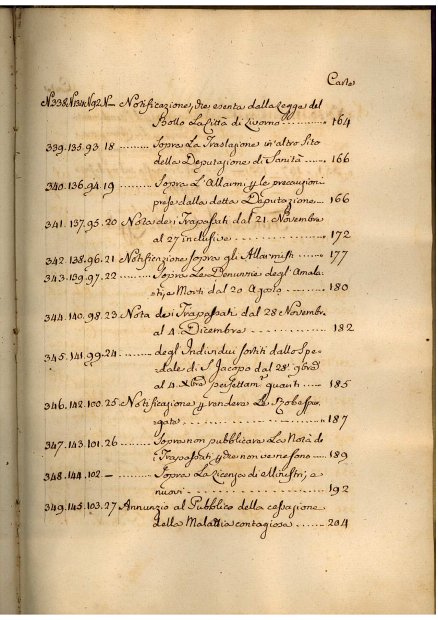 Carte
N.338 N.134 N.92 N— Notificazione, che esenta dalla Legge del
Bollo La Città di Livorno .......... 164
339.135.93.18 ......... Sopra La Traslazione in altro Sito
della Deputazione di Sanità ..... 166
340.136.94.19 ......... Sopra L'Allarmi, e le precauzioni
prese dalla detta Deputazione ... 166
341.137.95.20 Nota dei Trapassati dal 21 Novembre
al 27 inclusive ............ 172
342.138.96.21 Notificazione sopra gli Allarmisti ..... 177
343.139.97.22 ......... Sopra Le Denunzie degl'Amala-
ti, e Morti dal 20 Agosto .... 180
344.140.98.23 Nota dei Trapassati dal 28 Novembre
al 4 Dicembre ............ 182
345.141.99.24 ......... degl'Individui sortiti dallo Spe-
dale di S. Jacopo dal 28 9bre
al 4 Xbre perfettamte guariti ..... 185
346.142.100.25 Notificazione p. vendere Le Robe spur-
gate ............ 187
347.143.101.26 ......... Sopra non pubblicare La Nota de
i Trapassati p. che non ve ne sono .... 189
348.144.102 — ......... Sopra La Licenza di Ministri, a
nuovi ............ 192
349.145.103.27 Annunzio al Pubblico della cessazione
della Malattia contagiosa ....... 204